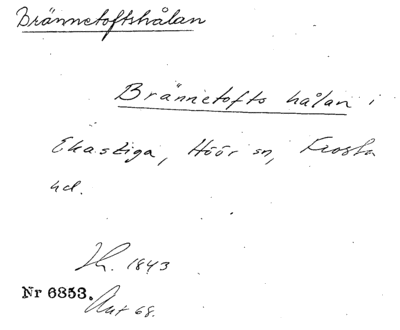 Brännetoftshålan
Brännetofts hålan i
Ekastiga, Höör sn, Frosta
hd.
Ih. 1843
Nr 6353.
Ant 68.